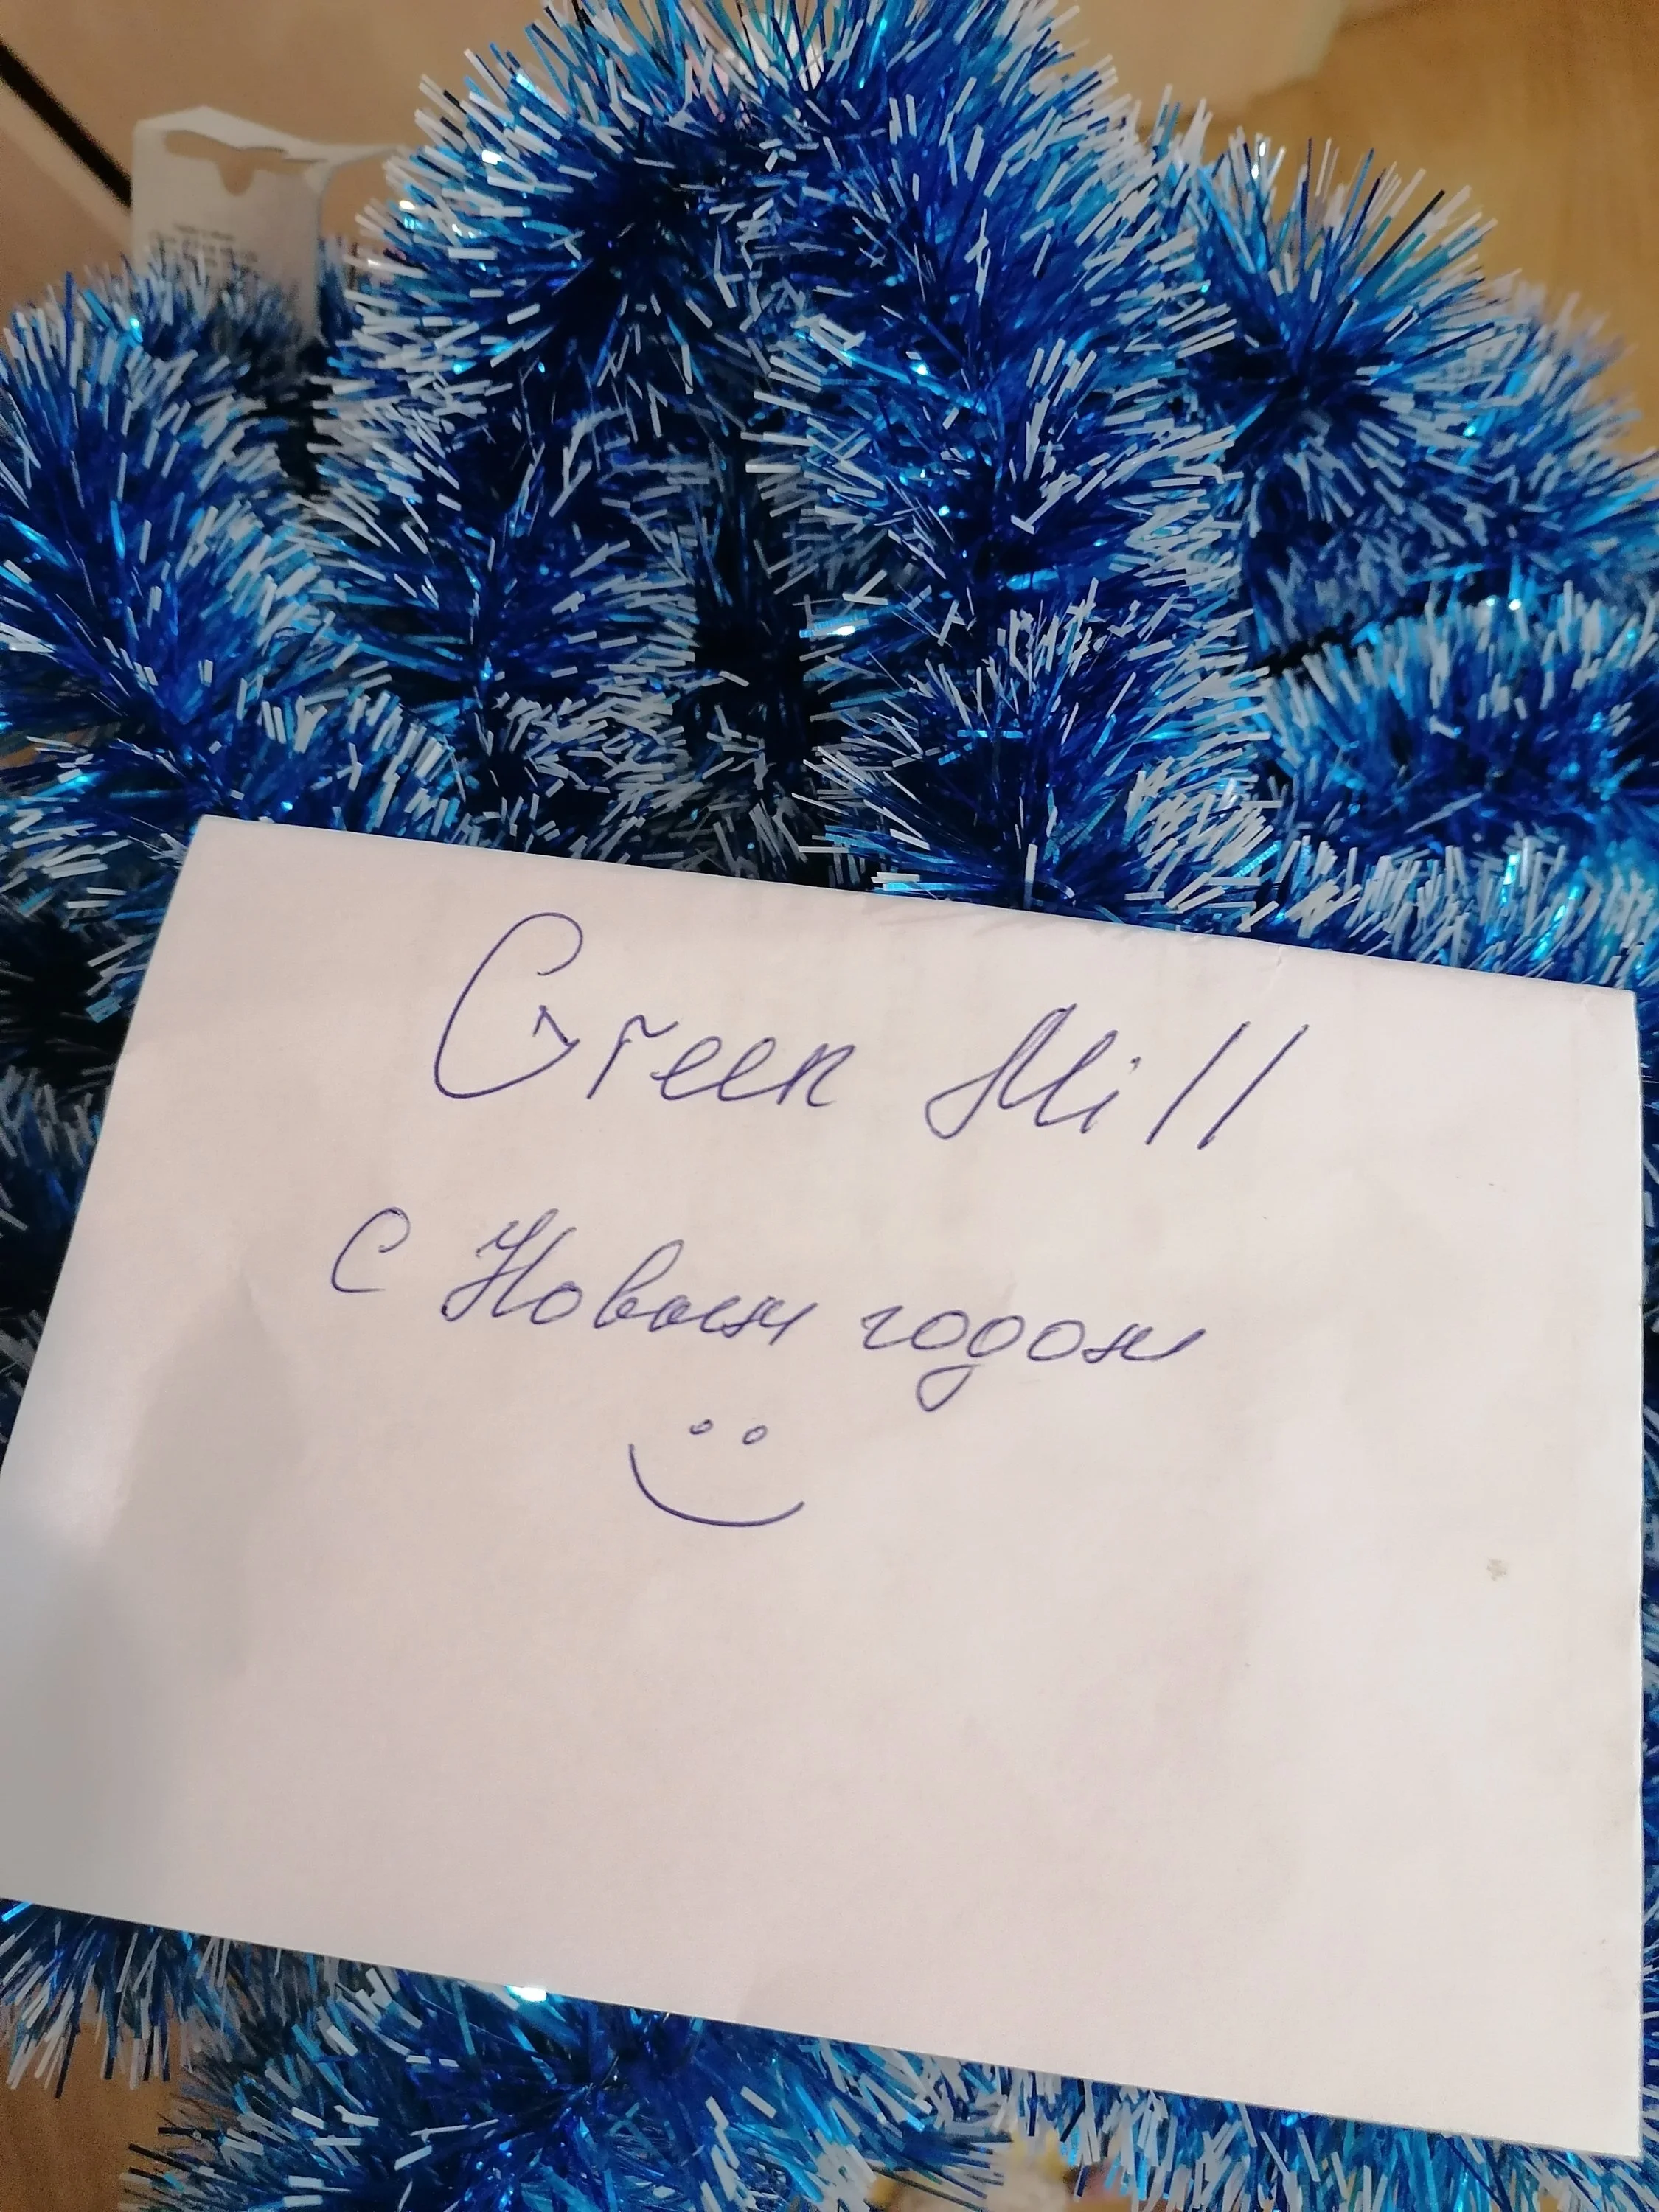 Green Mill
С Новым годом